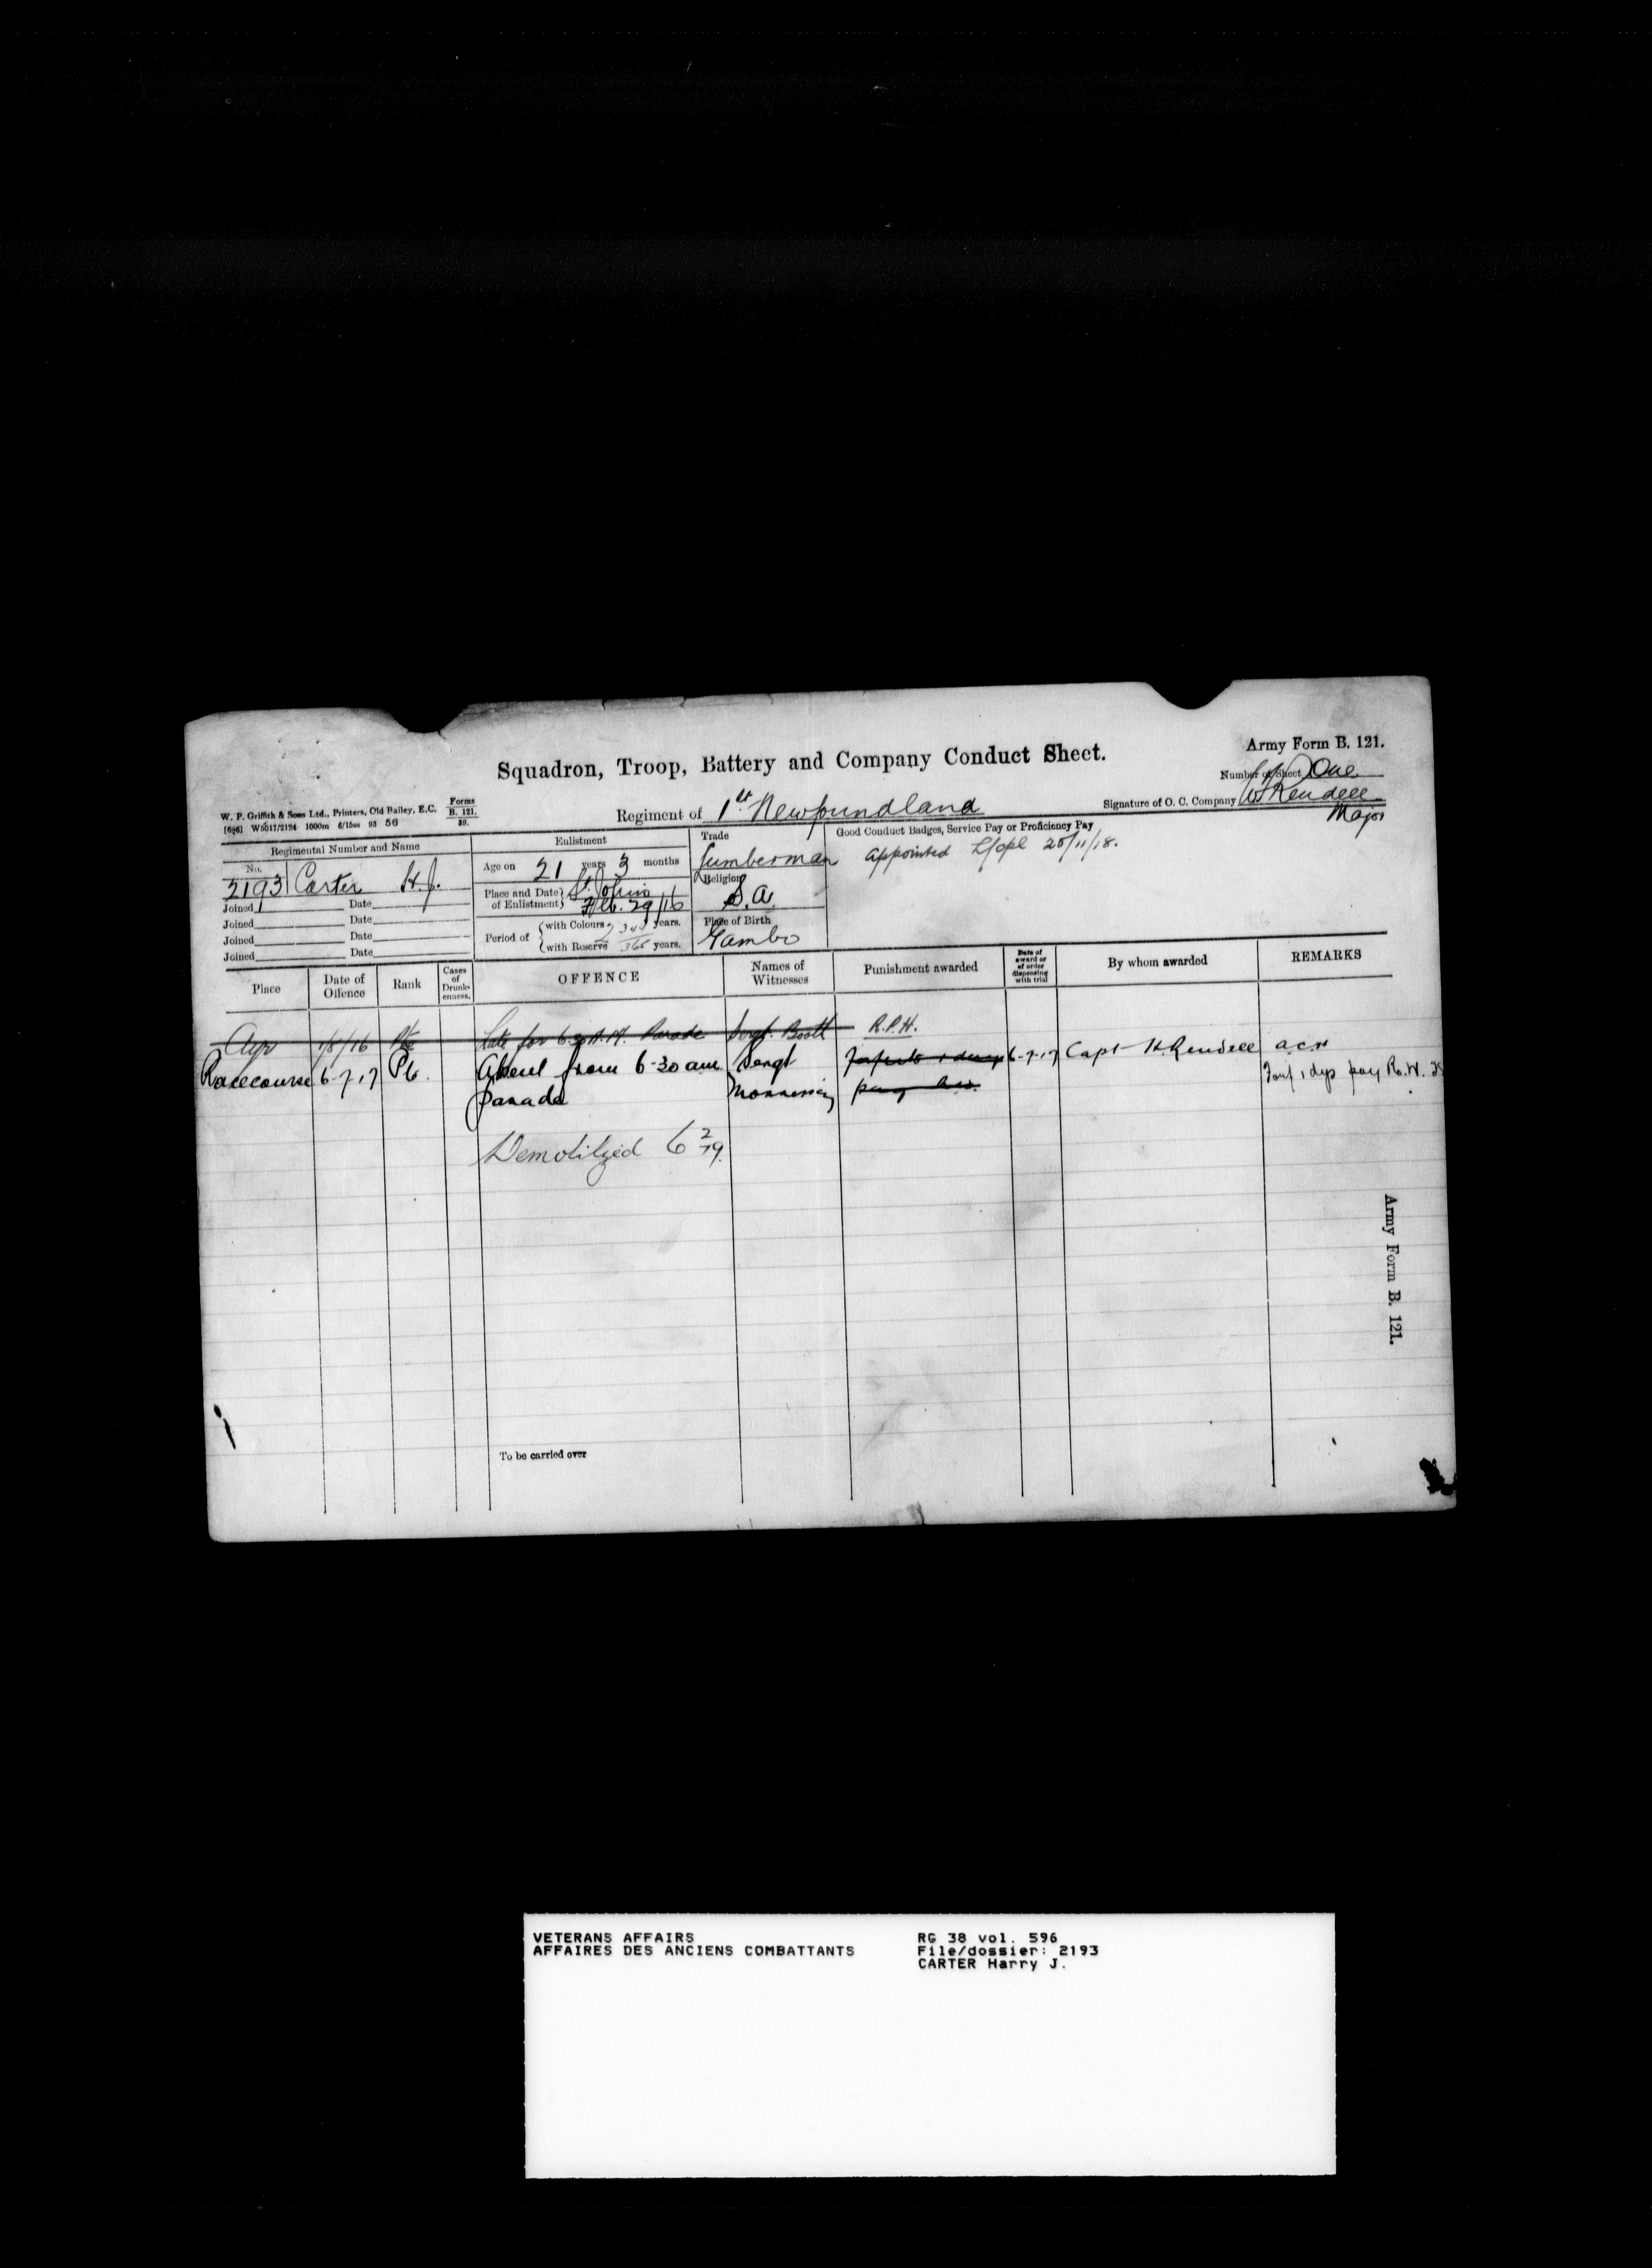 Army Form B. 121.
Squadron, Troop, Battery and Company Conduct Sheet.
Number of Sheet One
W. P. Griffith & Sons Ltd., Printers, Old Bailey, E.C. Forms B. 121. 39.
[696] W5017/2124 1000m 6/15ss 93 56
Regiment of 1st Newfoundland
Signature of O. C. Company W Rendell
Major
Regimental Number and Name
No. 2193 Carter H.J.
Joined Date
Joined Date
Joined Date
Joined Date
Enlistment
Age on 21 years 3 months
Place and Date of Enlistment St. John's
Feb. 29/16
Period of with Colours 2 years.
with Reserve 365 years.
Trade
Lumberman
Religion
S.A.
Place of Birth
Gambo
Good Conduct Badges, Service Pay or Proficiency Pay
Appointed L/Cpl 20/11/18.
Place
Date of Offence
Rank
Cases of Drunkenness.
OFFENCE
Names of Witnesses
Punishment awarded
Date of award or of order dispensing with trial
By whom awarded
REMARKS
Ayr 1/8/16 Pte Late for 6.30 A.M. Parade Sergt. Booth R.P.H.
Racecourse 6-7-17 Pte. Absent from 6-30 am Sergt Forfeits 1 days 6-7-17 Capt H Rendell
parade pay
Forf 1 dys pay R.W.
Demobilized 6 2/19.
To be carried over
Army Form B. 121.
VETERANS AFFAIRS
AFFAIRES DES ANCIENS COMBATTANTS
RG 38 vol. 596
File/dossier: 2193
CARTER Harry J.